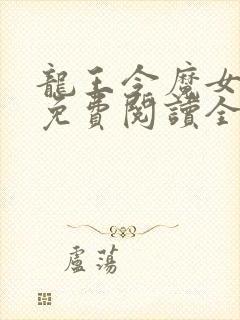 龍王令魔女
免費閱讀全
盧蕩